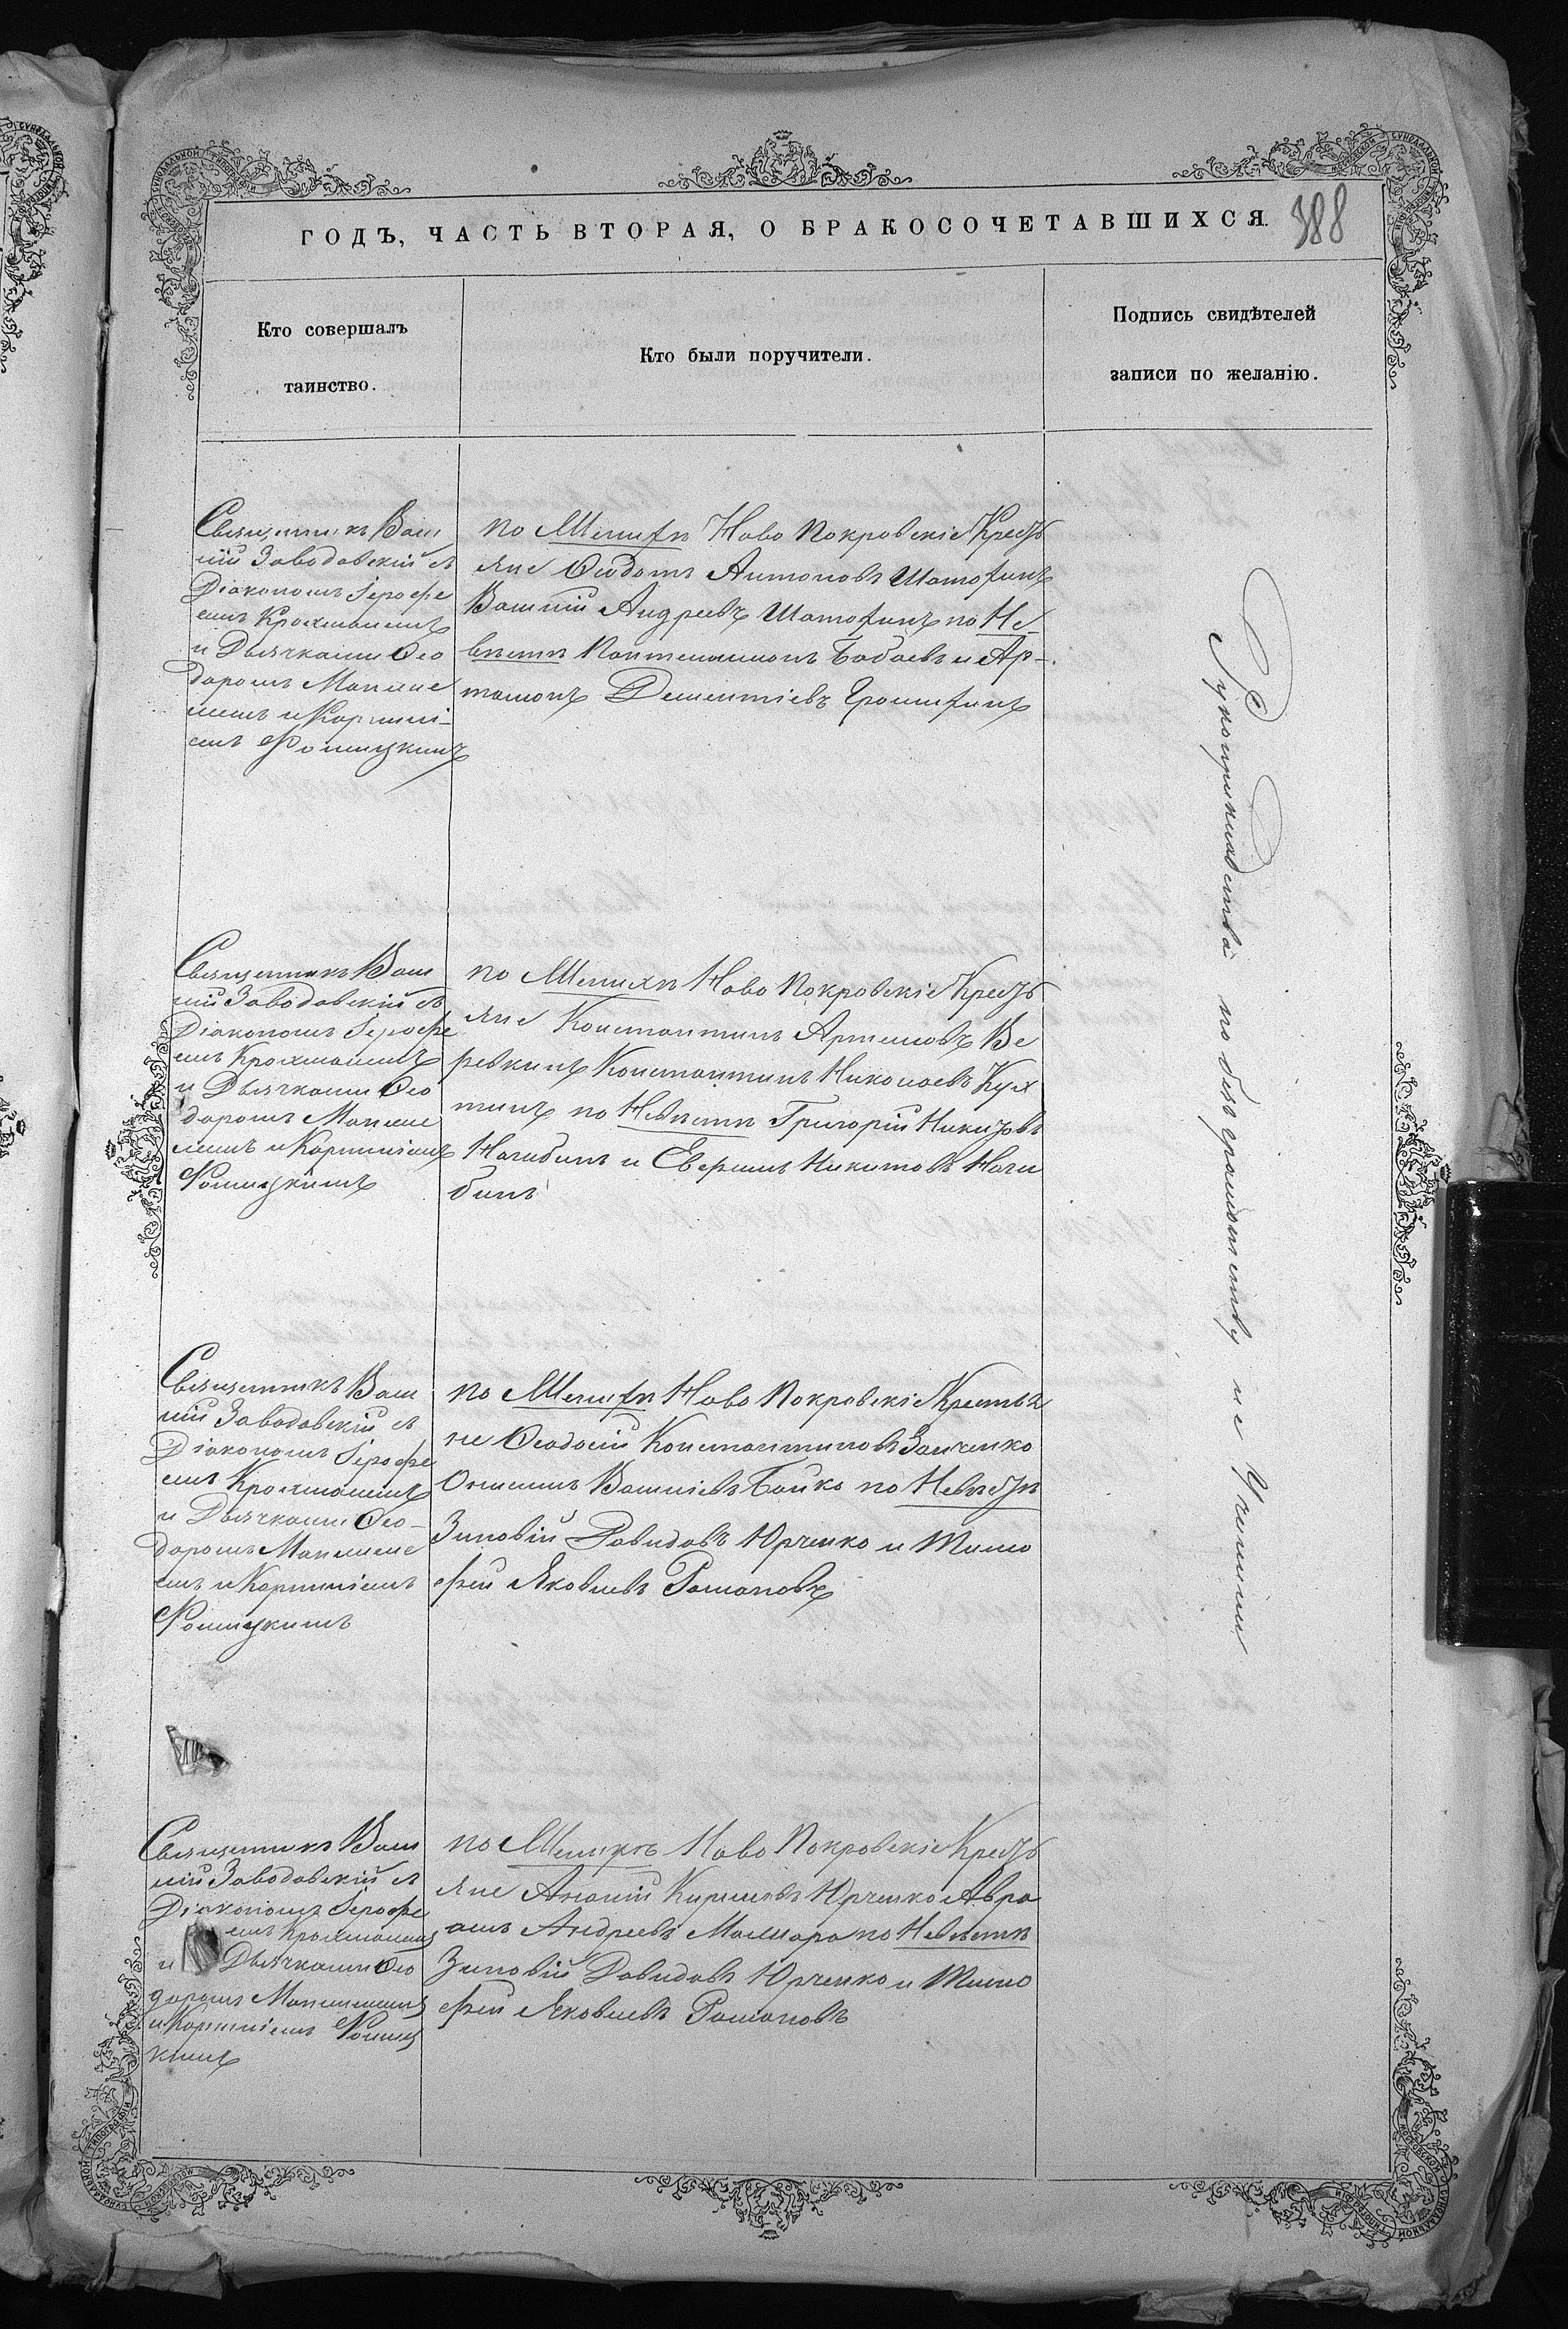 ГОДЪ, ЧАСТЬ ВТОРАЯ, О БРАКОСОЧЕТАВШИХСЯ.
388
Кто совершалъ
таинство.
Кто были поручители.
Подпись свидѣтелей
записи по желанію.
Священникъ Васи
лій Заводовскій съ
Діакономъ Іерофе
емъ Крохмалемъ
и Дьячками Ѳео
доромъ
и Корнилі-
емъ Фомицкимъ
по Женихѣ Ново Покровскіе Кресть
яне Ѳедотъ Антоновъ Шатохинъ
Василій Андреевъ Шатохинъ по Не
вѣстѣ Пантелимонъ Бабаевъ и Ар-
тамонъ Дементіевъ
Священникъ Васи
лій Заводовскій съ
Діакономъ Іерофе
емъ Крохмалемъ
и Дьячками Ѳео
доромъ
и Корниліемъ
Фомицкимъ
по Женихѣ Ново Покровскіе Кресть
яне Константинъ Артемовъ Ве
ревкинъ Константинъ Николаевъ Кух
тинъ по Невѣстѣ Григорій
Нагибинъ и Никитовъ Наги
бинъ
Священникъ Васи
лій Заводовскій съ
Діакономъ Іерофе
емъ Крохмалемъ
и Дьячками Ѳео-
доромъ
емъ и Корниліемъ
Фомицкимъ
по Женихѣ Ново Покровскіе Крестья
не Ѳеодосій Константиновъ Заиченко
Онисимъ Василіевъ Бойко по Невѣстѣ
Зиновій Давидовъ Юрченко и Тимо
фей Яковлевъ Романовъ
Священникъ Васи
лій Заводовскій съ
Діакономъ Іерофе
емъ Крохмалемъ
и Дьячками Ѳео
доромъ
и Корниліемъ Фомиц
кимъ
по Женихѣ Ново Покровскіе Кресть
яне Ананій Кириловъ Юрченко Авра
амъ Андреевъ по Невѣстѣ
Зиновій Давидовъ Юрченко и Тимо
фей Яковлевъ Романовъ
Рукоприкладства по безграмотству не учинили